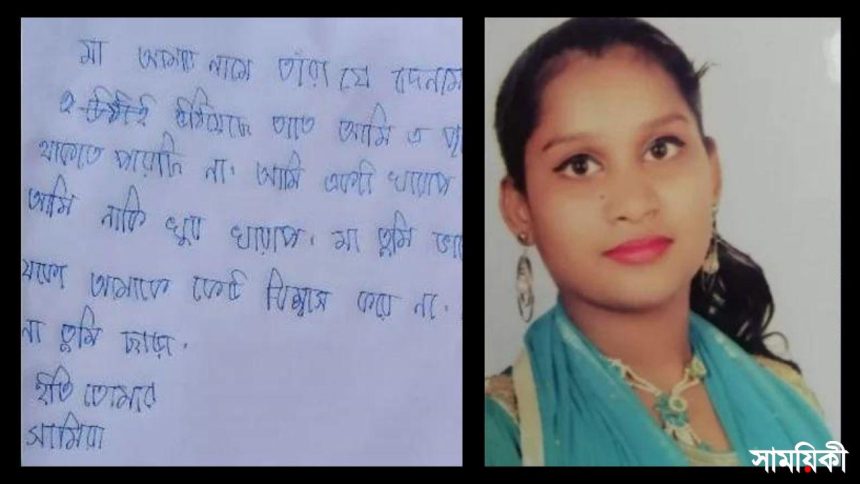 মা আমার নামে তাঁরা যে
আমি এ
থাকতে পারছি না। আমি একটা খারাপ
আমি নাকি খুব খারাপ। মা তুমি
থেকো আমাকে কেউ বিশ্বাস করে না।
না তুমি ছাড়া।
ইতি তোমার
সামিরা
সাময়িকী